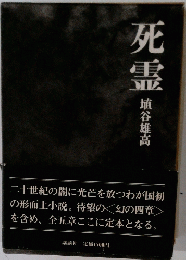 死霊
埴谷雄高
二十世紀の闇に光芒を放つわが国初
の形而上小説。待望の<幻の四章>
を含め、全五章ここに定本となる。